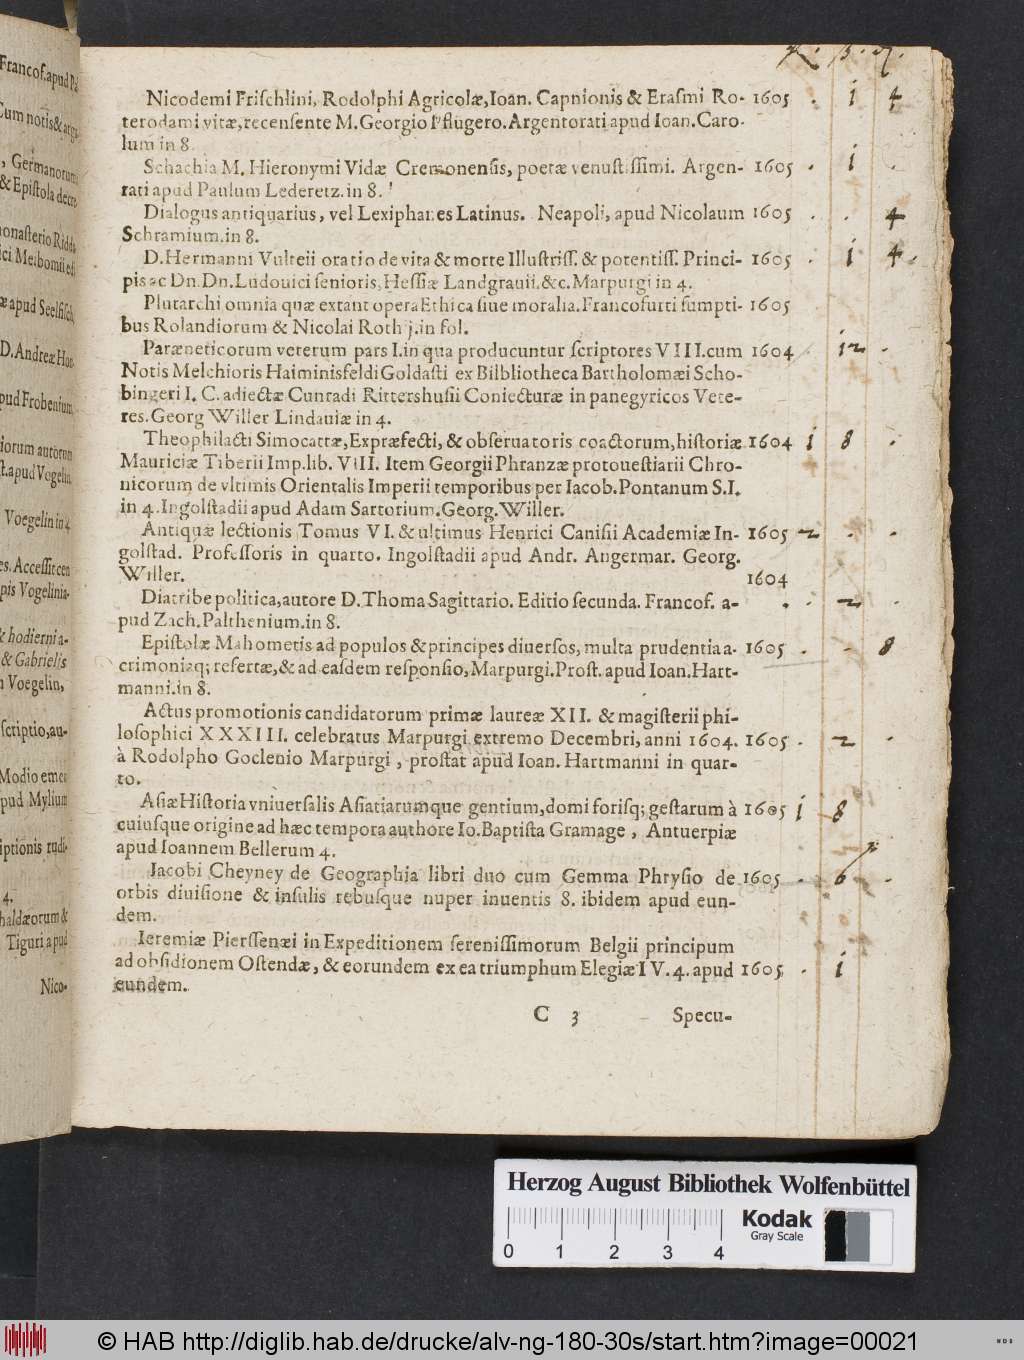 Nicodemi Friſchlini, Rodolphi Agricolæ, Ioan. Capnionis & Eraſmi Ro- 1605 . i 4
terodami vitæ, recenſente M. Georgio Pflugero. Argentorati apud Ioan. Caro-
lum in 8.
Schachia M. Hieronymi Vidæ Cremonenſis, poetæ venuſtiſſimi. Argen- 1605 . i .
rati apud Paulum Lederetz. in 8.
Dialogus antiquarius, vel Lexiphanes Latinus. Neapoli, apud Nicolaum 1605 . . 4
Schramium. in 8.
D. Hermanni Vulteii oratio de vita & morte Illuſtriſſ. & potentiſſ. Princi- 1605 . i 4.
pis ac Dn. Dn. Ludouici ſenioris, Heſſiæ Landgrauii, &c. Marpurgi in 4.
Plutarchi omnia quæ extant opera Ethica ſiue moralia. Francofurti ſumpti- 1605
bus Rolandiorum & Nicolai Rothij. in fol.
Paræneticorum veterum pars I. in qua producuntur ſcriptores VIII. cum 1604 . 12 .
Notis Melchioris Haiminisfeldi Goldaſti ex Bilbliotheca Bartholomæi Scho-
bingeri I. C. adiectæ Cunradi Rittershuſii Coniecturæ in panegyricos Vete-
res. Georg Willer Lindauiæ in 4.
Theophilacti Simocattæ, Expræfecti, & obſeruatoris coactorum, hiſtoriæ 1604 i 8 .
Mauriciæ Tiberii Imp. lib. VIII. Item Georgii Phranzæ protoueſtiarii Chro-
nicorum de vltimis Orientalis Imperii temporibus per Iacob. Pontanum S. I.
in 4. Ingolſtadii apud Adam Sartorium. Georg. Willer.
Antiquæ lectionis Tomus VI. & ultimus Henrici Caniſii Academiæ In- 1605 2 . .
golſtad. Profeſſoris in quarto. Ingolſtadii apud Andr. Angermar. Georg.
Willer.
1604
Diatribe politica, autore D. Thoma Sagittario. Editio ſecunda. Francof. a- . . 2 .
pud Zach. Palthenium. in 8.
Epiſtolæ Mahometis ad populos & principes diuerſos, multa prudentia a- 1605 . . 8
crimoniaq; refertæ, & ad eaſdem reſponſio, Marpurgi. Proſt. apud Ioan. Hart-
manni. in 8.
Actus promotionis candidatorum primæ laureæ XII. & magiſterii phi-
loſophici XXXIII. celebratus Marpurgi extremo Decembri, anni 1604. 1605 . 2 .
à Rodolpho Goclenio Marpurgi, proſtat apud Ioan. Hartmanni in quar-
to.
Aſiæ Hiſtoria vniuerſalis Aſiatiarumque gentium, domi foriſq; geſtarum à 1605 i 8
cuiuſque origine ad hæc tempora authore Io. Baptiſta Gramage, Antuerpiæ
apud Ioannem Bellerum 4.
Jacobi Cheyney de Geographia libri duo cum Gemma Phryſio de 1605 . 6 .
orbis diuiſione & inſulis rebuſque nuper inuentis 8. ibidem apud eun-
dem.
Ieremiæ Pierſſenæi in Expeditionem ſereniſſimorum Belgii principum
ad obſidionem Oſtendæ, & eorundem ex ea triumphum Elegiæ IV. 4. apud 1605 . i
eundem.
C 3 Specu-
Francof. apud
Cum notis &
, Germanorum
& Epiſtola
D. Andreæ
pud Frobenium
iorum autorum
Voegelin in 4
es. Acceſſit cen
pis Vogelinia-
& hodierni a-
& Gabrielis
Voegelin,
ſcriptio, au-
Modio
pud Mylium
iptionis rudi-
4.
haldæorum &
Tiguri apud
Nico-
Herzog August Bibliothek Wolfenbüttel
Kodak
Gray Scale
0 1 2 3 4
© HAB http://diglib.hab.de/drucke/alv-ng-180-30s/start.htm?image=00021